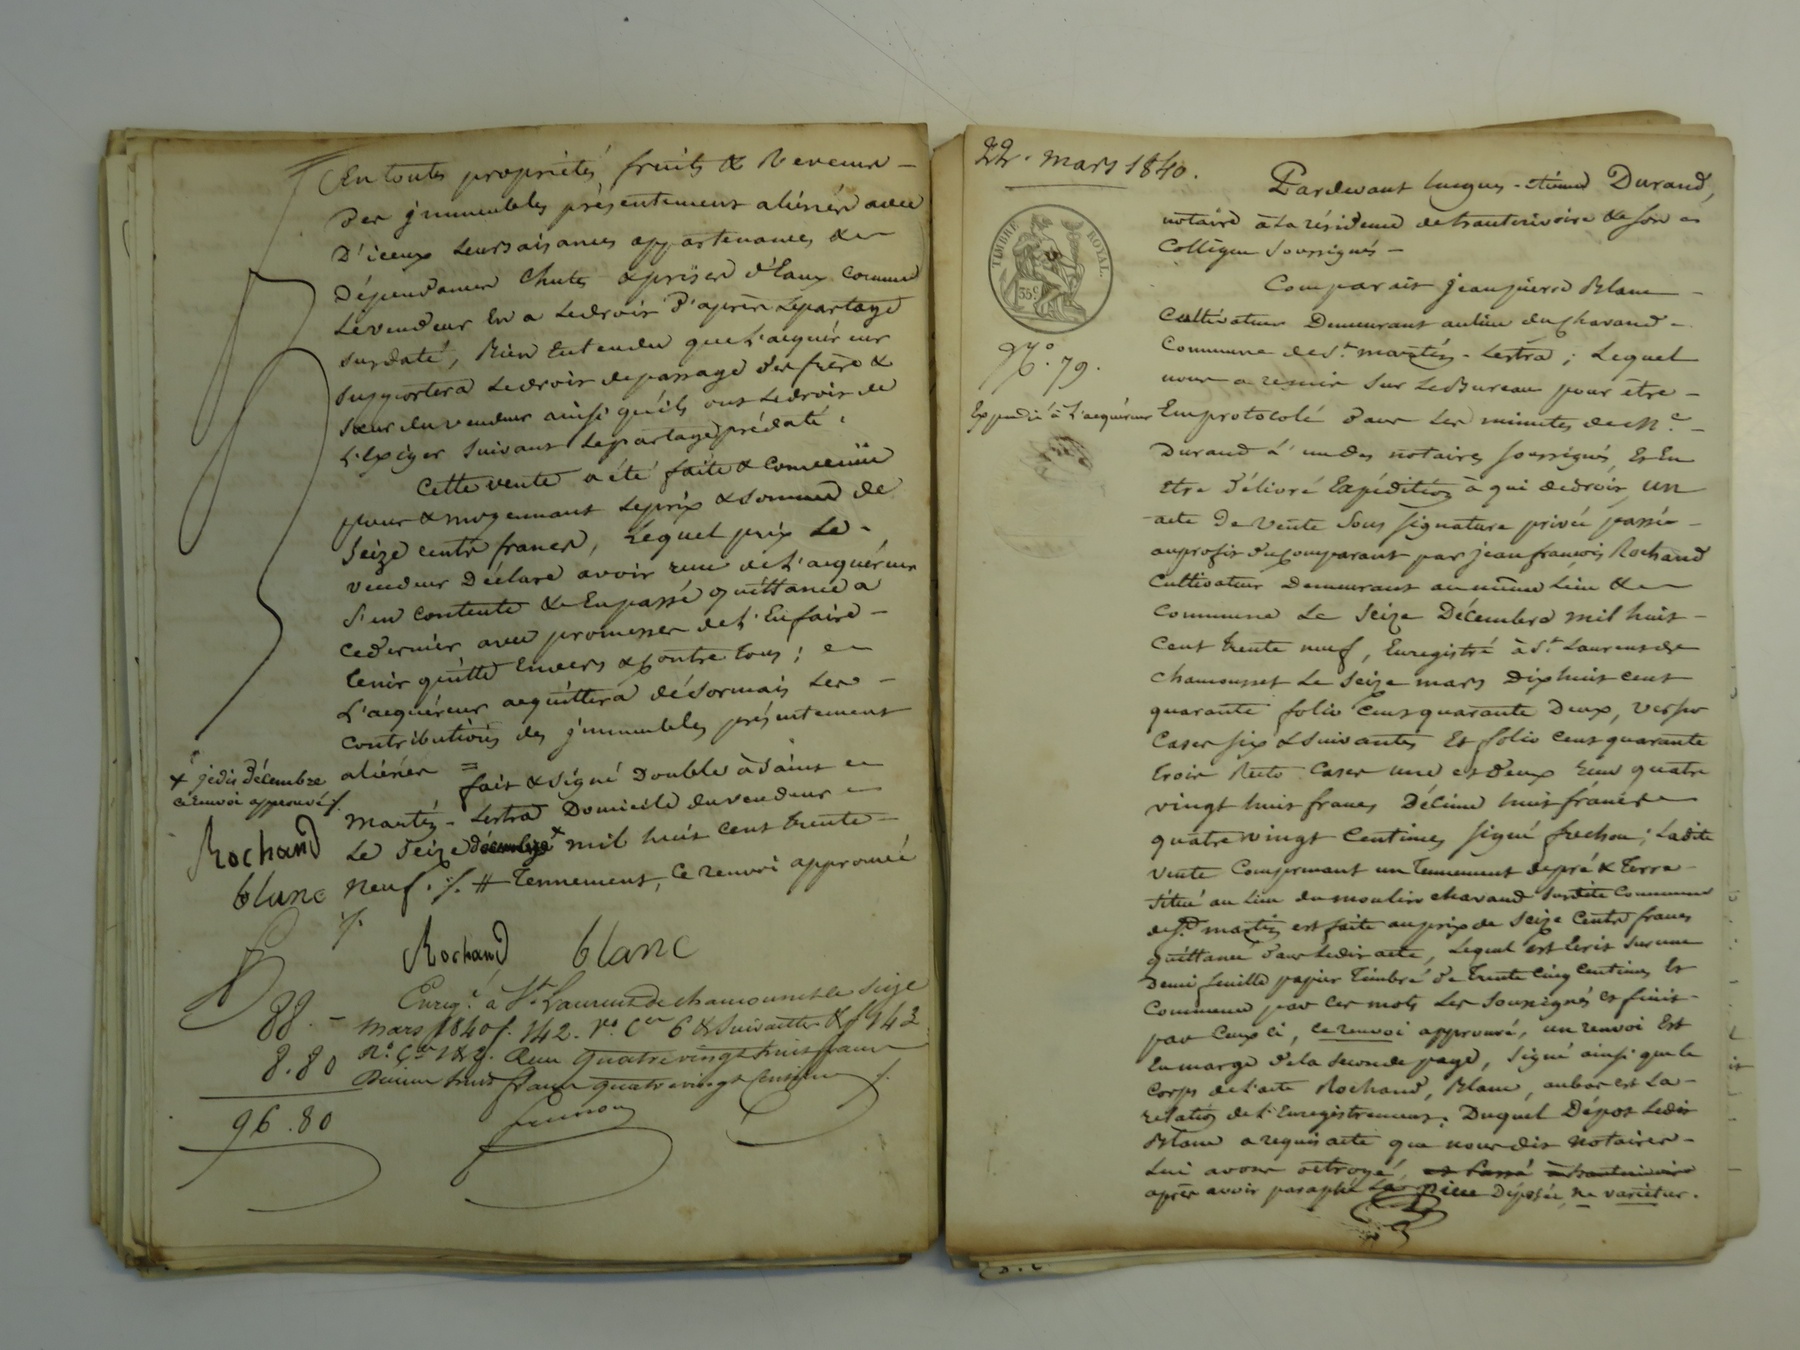 En toutes propriétés fruits & Revenus –
Des jmmeubles présentement aliénés avec
D'iceux leurs aisances appartenances &
Dépendances Chutes & prises d'Eaux Comme
Le vendeur En a Ledroit D'après Lepartage
susdaté, Bien Entendu que L'acquéreur
supportera Ledroit de passage des frère &
sœur du vendeur ainsi qu'ils ont Ledroit de
L'Exiger suivant Lepartage prédaté.
Cette vente a été faite & Convenüe
pour & moyennant Leprix & somme de
Seize cents francs, Lequel prix Le
vendeur Déclare avoir reçu de L'acquéreur
S'en contente & En passe quittance a
ce dernier avec promesse de L'En faire –
tenir quitte Envers & contre tous ;
L'acquéreur acquittera désormais Les –
contributions des jmmeubles présentement
aliénés =
fait & signé Double à Saint
Martin – Lestra Domicile du vendeur
Le Seize décembre mil huit cent trente –
neuf ./. # Tennement, Ce renvoi approuvé
+ je dis décembre
ce renvoi approuvé /.
Rochand
blanc
Rochand blanc
Enreg.t à St Laurent de chamousset le seize
mars 1840 f. 142. Vo. Ces 6 & suivantes & f 143
Ro. Ces 1 & 2. Reçu Quatre vingt huit francs
Décime huit francs quatre vingt Centimes
88. –
8.80
96.80
22. mars 1840.
TIMBRE ROYAL.
35c
No. 79.
Expédié à L'acquéreur
Pardevant Durand,
notaire à La résidence de hauterivoire & son
Collègue Soussignés –
Comparait Jean pierre Blanc –
Cultivateur Demeurant au lieu du Chavand –
Commune de St. martin – Lestra ; Lequel
nous a remis sur Le Bureau pour être –
Emprotocolé dans Les minutes de Me. –
Durand L'un des notaires soussignés, Et En
être délivré Expédition à qui de droit, un
acte De Vente Sous signature privée passé –
au profit du Comparant par jean françois Rochand
Cultivateur Demeurant au même Lieu &
Commune Le Seize Décembre mil huit –
cent trente neuf, Enregistré à St. Laurent de
chamousset Le Seize mars Dix huit cent
quarante folio Cent quarante Deux, verso
Cases six & suivantes Et folio cent quarante
trois Recto Cases une et deux reçu quatre
vingt huit francs Décime huit francs
quatre vingt Centimes signé frechon ; Ladite
vente Comprenant un Tennement de pré & Terre –
situé au Lieu du moulin chavand susdite Commune
de St. martin est faite au prix de Seize Cents francs
quittancé dans Ledit acte, Lequel est Ecrit sur une
Demi feuille papier Timbré de Trente Cinq Centimes Et
Commence par ces mots Les soussignés et finit –
par Ceux ci, ce renvoi approuvé, un renvoi Est
En marge de la seconde page, signé ainsi que le
Corps de l'acte Rochand, Blanc, au bas est La –
relation de L'Enregistrement. Duquel Dépot Ledit
Blanc a requis acte que nous dits notaires –
Lui avons octroyé, et Passé à hauterivoire
après avoir paraphé La pièce Déposée, ne varietur.